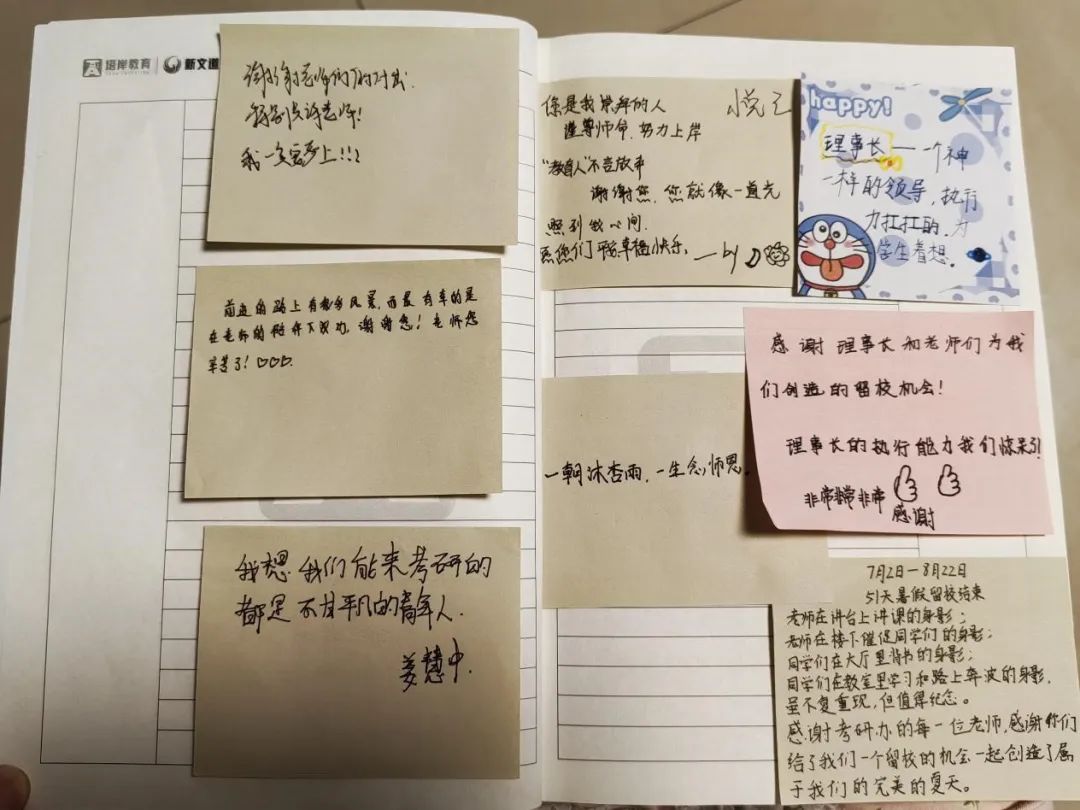 培岸教育 新文道
谢谢老师们的付出.
特别使许老师!
我一定要上!!!
前进的路上有都多风景,而最有幸的是
在老师的陪伴下努力,谢谢您!老师您
辛苦了!♡♡♡.
我想我们能来考研的
都是不甘平凡的青年人.
姜慧中.
您是我崇拜的人
谨尊师命,努力上岸
"教育人"不言放弃
谢谢您,您就像一道光
照到我心间.
愿您们平安幸福快乐. —by
happy!
理事长——一个神
一样的领导,执行
力扛扛的,为
学生着想。
感谢理事长和老师们为我
们创造的留校机会!
理事长的执行能力我们惊呆了!
非常非常非常
感谢
一朝沐杏雨,一生念师恩。
7月2日—8月22日
51天暑假留校结束
老师在讲台上讲课的身影;
老师在楼下催促同学们的身影;
同学们在大厅里背书的身影;
同学们在教室里学习和路上奔波的身影,
虽不复重现,但值得纪念。
感谢考研办的每一位老师,感谢你们
给了我们一个留校的机会一起创造了属
于我们的完美的夏天。